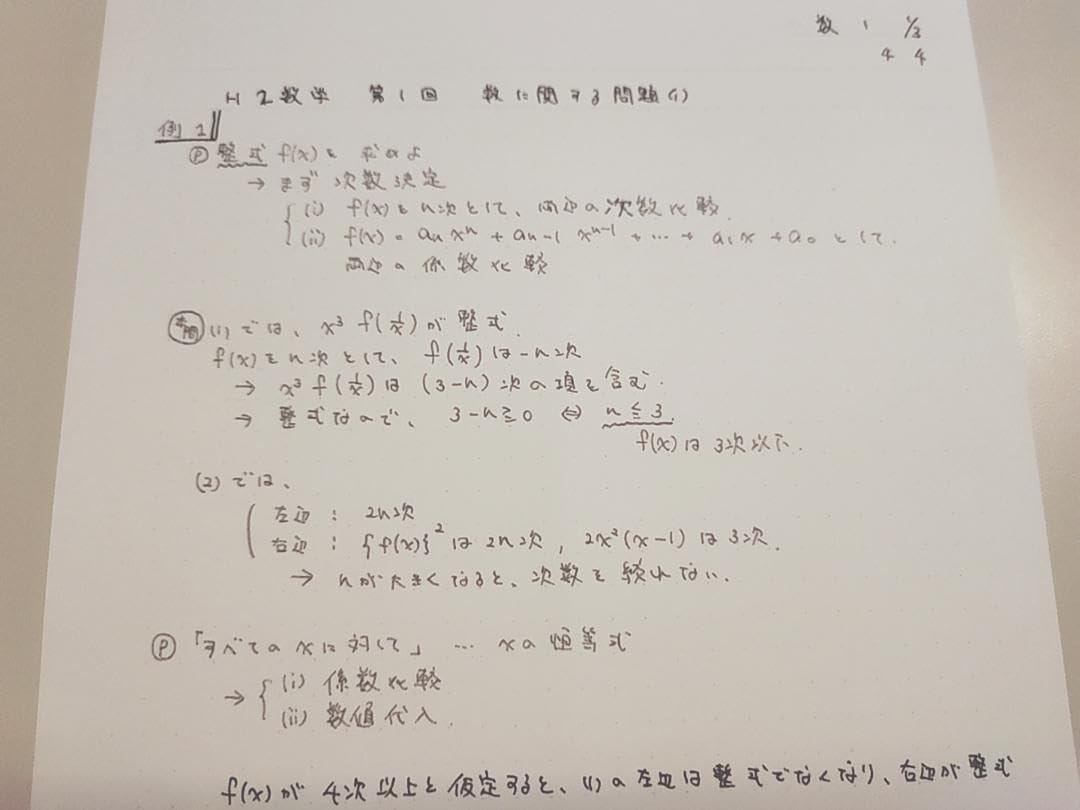 数 1 1/3
4 4
H2数学 第1回 数に関する問題(1)
例1
Ⓟ 整式 f(x) を 求めよ
→ まず 次数決定
(i) f(x)をn次として、両辺の次数比較.
(ii) f(x) = aₙxⁿ + aₙ₋₁ xⁿ⁻¹ + … + a₁x + a₀ として.
両辺の係数比較
本問 (1) では、x³ f(1/x) が 整式.
f(x)をn次として、f(1/x)は-n次
→ x³ f(1/x) は (3-n) 次の項を含む.
→ 整式なので、3-n≧0 ⇔ n≦3.
f(x)は3次以下.
(2) では、
左辺 : 2n次
右辺 : {f(x)}² は 2n次, 2x²(x-1) は 3次.
→ nが大きくなると、次数を絞れない.
Ⓟ 「すべてのxに対して」 … xの恒等式
→ (i) 係数比較
(ii) 数値代入.
f(x)が 4次以上と仮定すると、(1)の左辺は整式でなくなり、右辺が整式